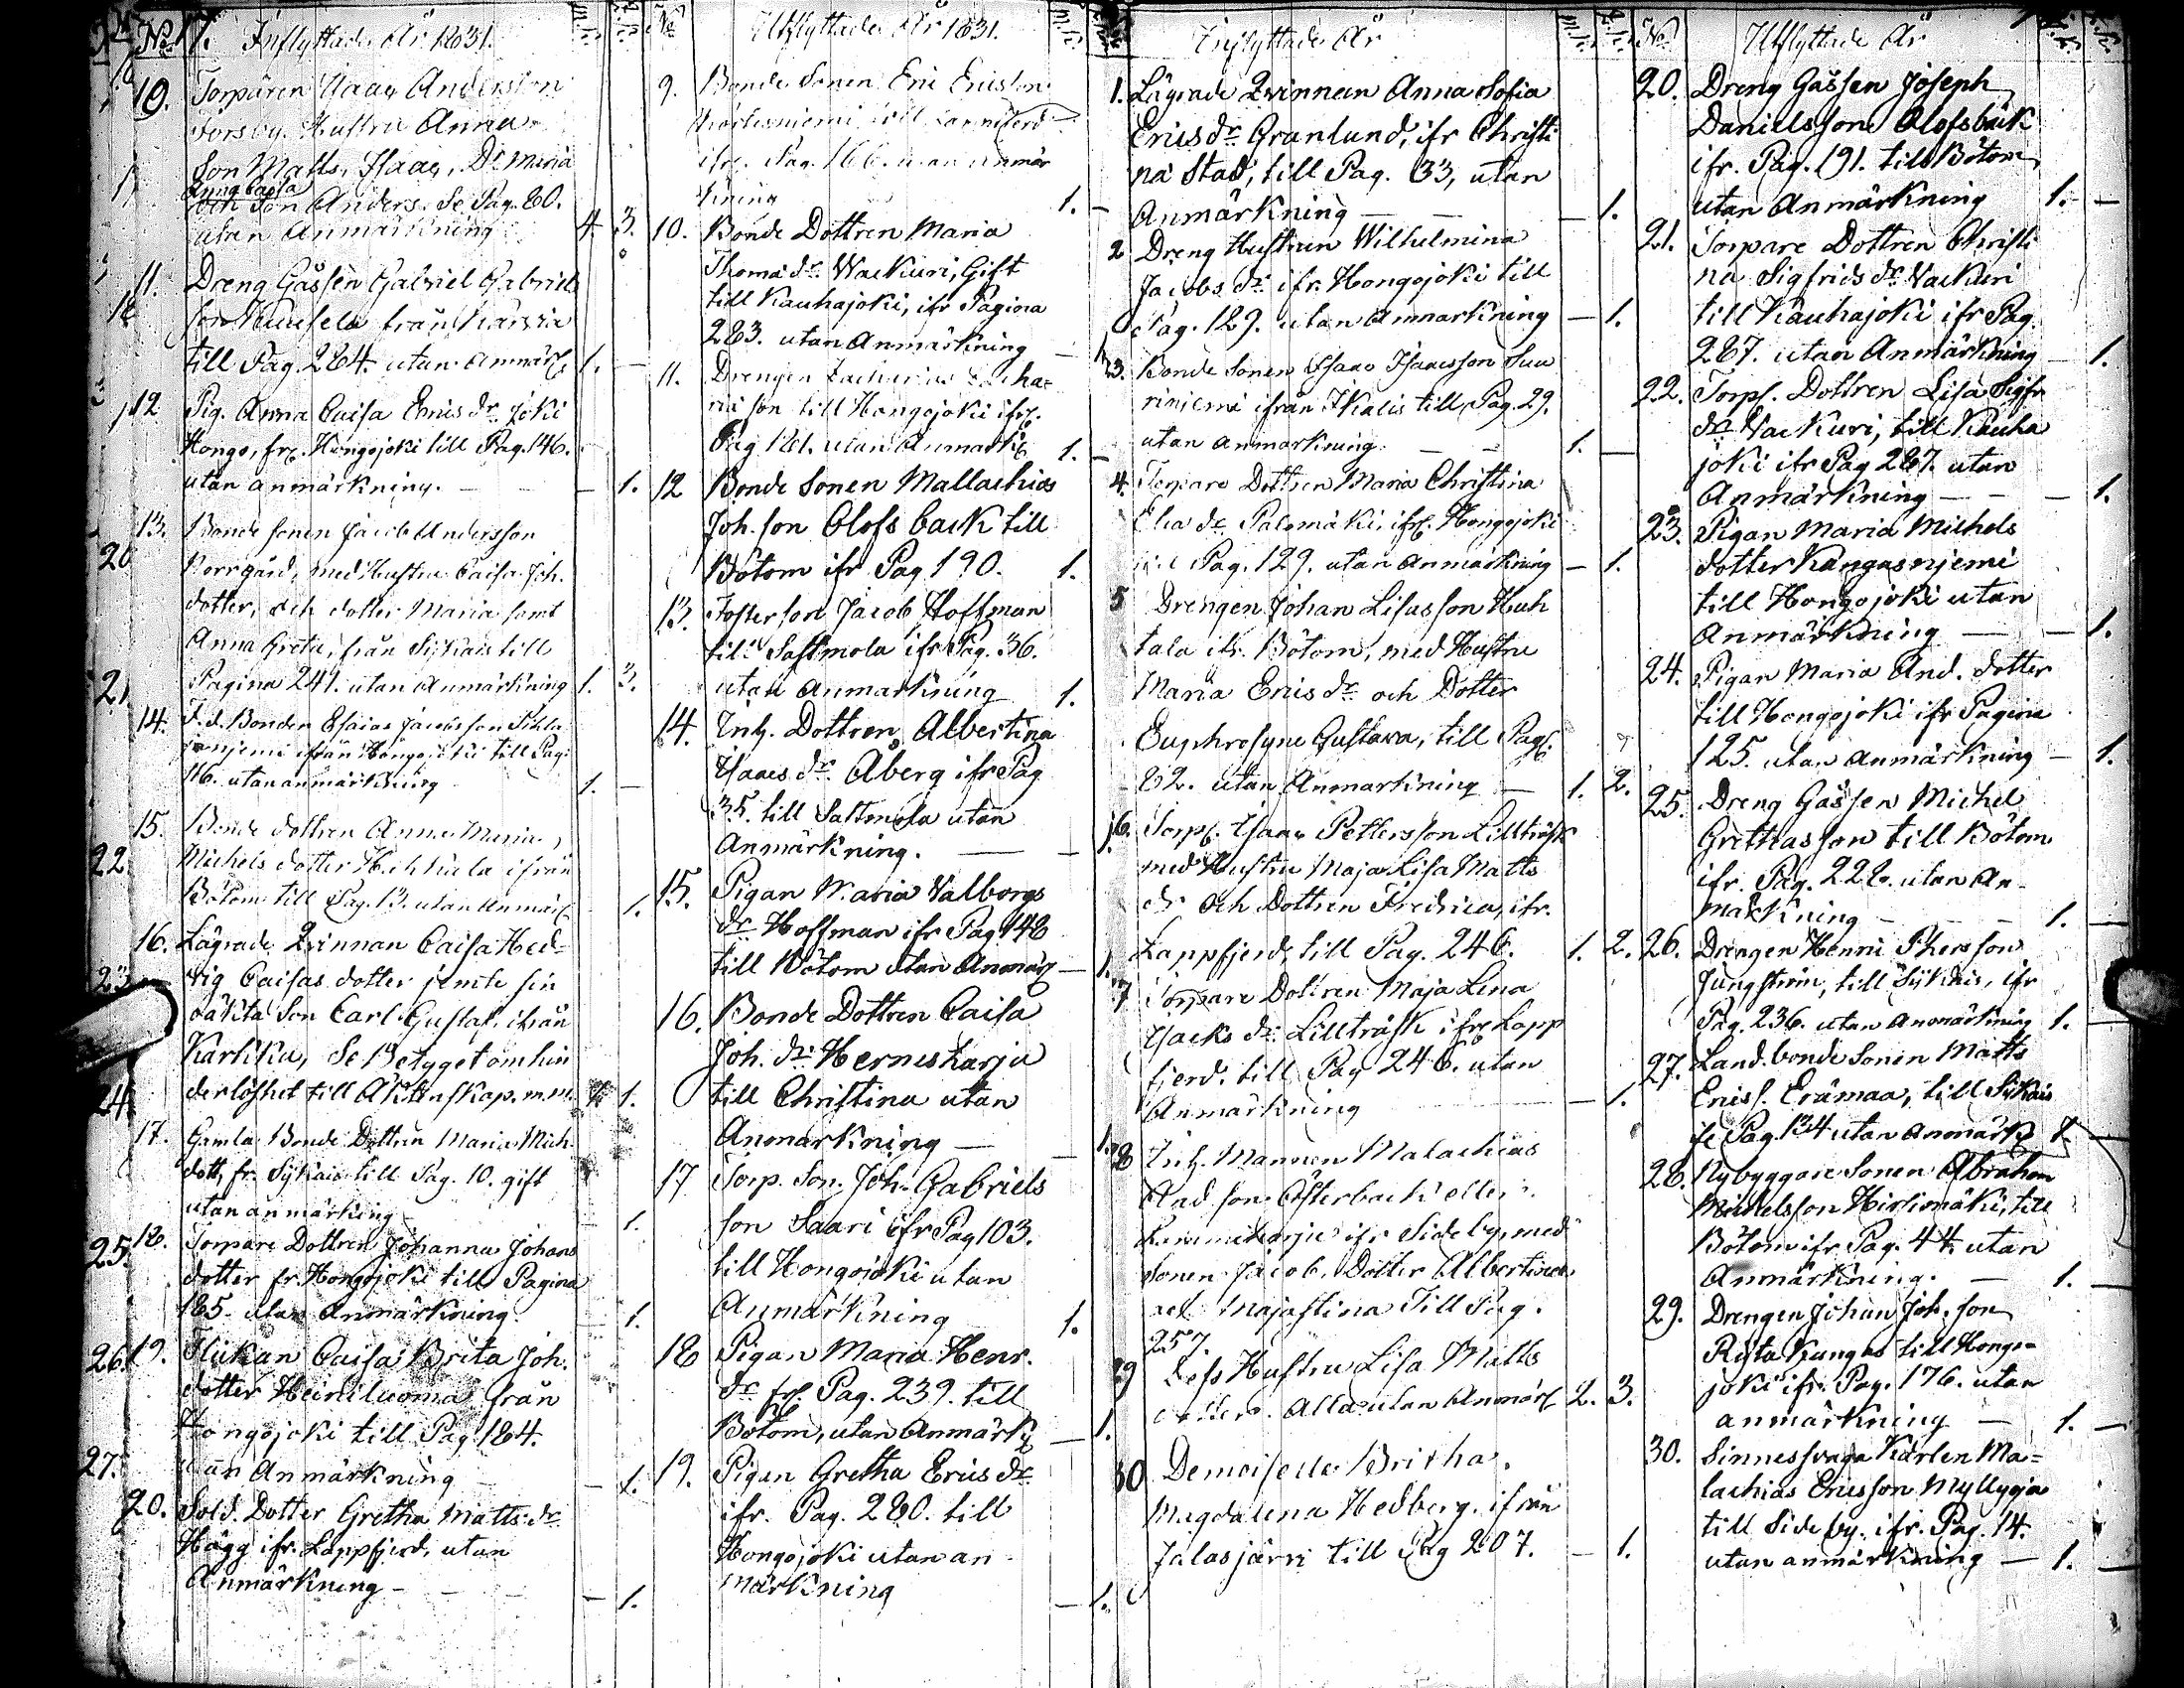 No Inflyttade År 1831.
10. Torparen Isaac Andersson
Forsby, Hustru Anna
Son Matts, Isaac, Dr Maria
Anna Caisa
och Son Anders. Se Pag. 80.
utan Anmärkning 4. 3.
11. Dreng Gåssen Gabriel Gabriels
son från
till Pag. 284. utan Anmärk. 1. —
12 Pig. Anna Caisa Ericsdr Joki
Hongo, fr. Hongojoki till Pag. 146.
utan anmärkning. — — 1.
13. Bonde sonen Jacob Andersson
Norrgård, med Hustru Caisa Joh.
dotter, och dotter Maria samt
Anna Greta, från Sijkais till
Pagina 241. utan Anmärkning 1. 3.
14. F. d. Bonden Esaias Jacobsson
ifrån Hongojoki till Pag.
116. utan anmärkning 1. —
15. Bonde dottren Anna Maria
Michels dotter ifrån
Bötom till Pag. 13. utan anmärk. 1.
16. Lägrade Qvinnan Caisa Hed-
vig Caisas dotter jemte sin
oäkta Son Carl Gustaf, ifrån
Karkku, Se Betyget om hin
derlöshet till Äktenskap. m.m. 1.
17. Gamla Bonde Dottren Maria Mich.
dott, fr. Sijkais till Pag. 10. gift
utan anmärkning 1.
18. Torpare Dottren Johanna Johans
dotter fr. Hongojoki till Pagina
185. utan Anmärkning 1.
19. Flickan Caisa Brita Joh.
dotter Heiniluoma från
Hongojoki till Pag. 184.
utan Anmärkning — 1.
20. Sold. Dotter Gretha Mattsdr
Hägg ifr. Lappfjerd, utan
Anmärkning — — 1.
No Utflyttade År 1831.
9. Bonde Sonen Eric Ericsson
ifr. Pag. 166. utan anmär
kning 1. —
10. Bonde Dottren Maria
Thomædr Wackuri, Gift
till Kauhajoki, ifr Pagina
283. utan Anmärkning — 1.
11. Drengen Zacharias Zacha-
riæson till Hongojoki ifr.
Pag 121. utan Anmärk. 1. —
12 Bonde Sonen Mallachias
Joh. son Olofs back till
Bötom ifr Pag 190. 1.
13. Fosterson Jacob Hoffman
till Sastmola ifr Pag. 36.
utan anmärkning 1.
14. Inh. Dottren Albertina
Isaacsdr Åberg ifr Pag
35. till Sastmola utan
Anmärkning. — — 1.
15. Pigan Maria Valborgs
dr Hoffman ifr Pag 148
till Bötom utan Anmärk — 1.
16. Bonde Dottren Caisa
Joh. dr Hernesharju
till Christina utan
Anmärkning — — 1.
17 Torp. Son. Joh. Gabriels
son Saari ifr Pag 103.
till Hongojoki utan
Anmärkning 1.
18 Pigan Maria Henr.
dr fr. Pag. 239. till
Bötom, utan Anmärk — 1.
19. Pigan Gretha Ericsdr
ifr. Pag. 280. till
Hongojoki utan an
märkning — 1.
Inflyttade År
1. Lägrade Qvinnan Anna Sofia
Ericsdr Granlund, ifr Christi
næ Stad, till Pag. 33, utan
Anmärkning — — 1.
2 Dreng Hustrun Wilhelmina
Jacobsdr ifr. Hongojoki till
Pag. 129. utan Anmärkning — 1.
3. Bonde Sonen Isaac Isaacsson Suu
rinjemi ifrån Ikalis till Pag. 29.
utan anmärkning — — 1. —
4. Torpare Dottren Maria Christina
Eliædr Palomäki, ifr. Hongojoki
till Pag. 129. utan Anmärkning — 1.
5 Drengen Johan Lisasson Huh
tala ifr. Bötom, med Hustru
Maria Ericsdr och Dotter
Euphrosyne Gustava, till Pag.
82. utan Anmärkning — 1. 2.
6. Torp. Isaac Pettersson Lillträsk
med Hustru Maja Lisa Matts
dr och Dottren Fredrica, ifr.
Lappfjerd, till Pag. 246. 1. 2.
7 Torpare Dottren Maja Lena
Isacksdr Lillträsk ifr Lapp
fjerd. till Pag 246. utan
Anmärkning — 1.
8 Inh. Mannen Malachias
And. son Österback eller
ifr Sideby, med
Sonen Jacob, Dotter Albertina
och Majastina Till Pag.
257.
9 Dess Hustru Lisa Matts
dotter. Alla utan Anmärk 2. 3.
10 Demoiselle Britha
Magdalena Hedberg, ifrån
Jalasjärvi till Pag 207. — 1.
No Utflyttade År
20. Dreng Gåssen Joseph
Danielsson Olofsbäck
ifr. Pag. 191. till Bötom
utan Anmärkning 1. —
21. Torpare Dottren Christi
na Sigfridsdr Wackuri
till Kauhajoki ifr Pag.
287. utan Anmärkning — 1.
22. Torp. Dottren Lisa Sigfr
dr Wackuri, till Kauha
joki ifr Pag 287. utan
Anmärkning — — — 1.
23. Pigan Maria Michels
dotter Kangasnjemi
till Hongojoki utan
Anmärkning — — 1.
24. Pigan Maria And. dotter
till Hongojoki ifr Pagina
125. utan anmärkning — 1.
25. Dreng Gåssen Michel
Grethasson till Bötom
ifr. Pag. 228. utan An-
märkning — — — 1. —
26. Drengen Henric Phersson
Ljungström, till Sijkais, ifr
Pag. 236. utan Anmärkning 1. —
27. Land. bonde Sonen Matts
Ericss. Erämaa, till Sijkais
se Pag. 134 utan Anmärk 1 —
28. Nybyggare Sonen Abraham
Michelsson Hirsimäki, till
Bötom ifr Pag. 44. utan
Anmärkning. — 1. —
29. Drengen Johan Joh. son
Rysta Kangas till Hongo-
joki ifr. Pag. 176. utan
anmärkning — 1. —
30. Sinnessvaga Karlen Ma-
lachias Ericsson Myllyoja
till Sideby. ifr. Pag. 14.
utan anmärkning — 1. —